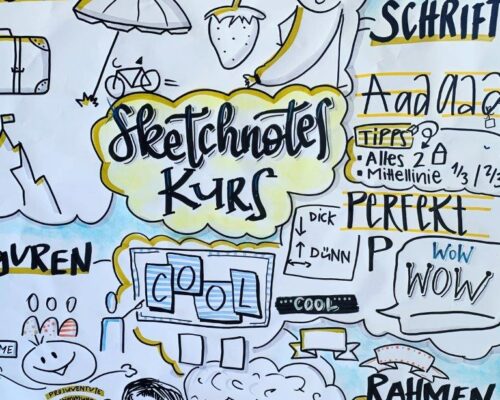 SCHRIFT
Aaaaaa
Sketchnotes
KURS
TIPPS
• Alles 2
• Mittellinie 1/3 | 2/3
PERFEKT
DICK
DÜNN
P
WOW
WOW
GUREN
COOL
COOL
ME
PROJUVENTUTE
RAHMEN